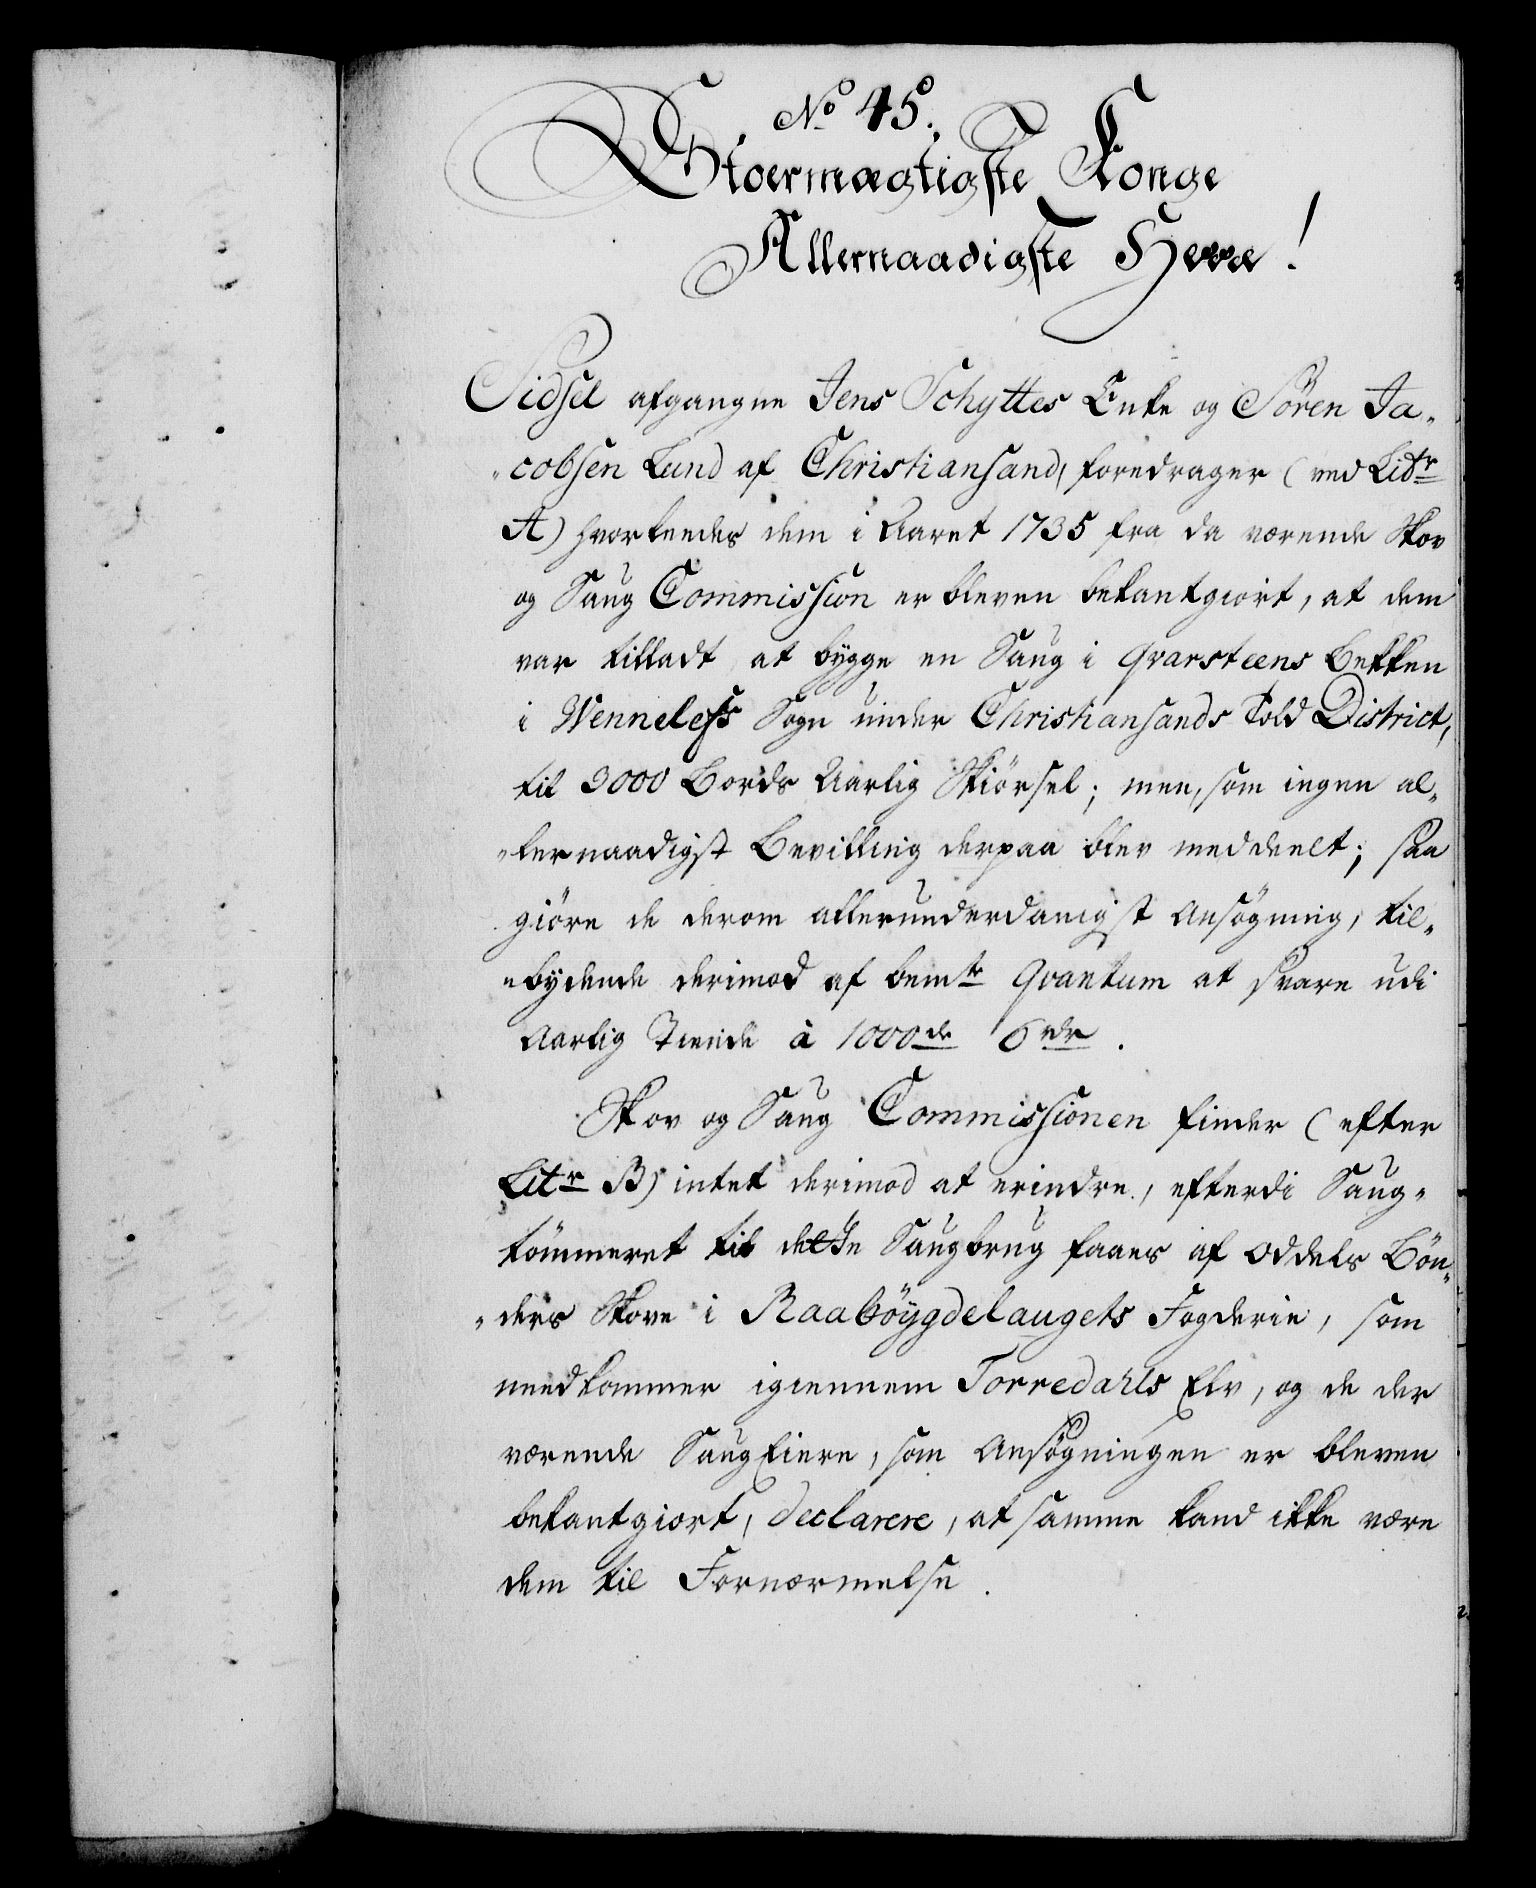 No 45.
Stoermægtigste Konge
Allernaadigste Herre!
Sidsel afgangne Jens Schyttes Enke og Sören Ja„
„cobsen Lund af Christiansand, foredrager (ved Litr
A) hvorledes dem i Aaret 1735 fra da værende Skov
og Saug Commission er bleven bekantgiort, at dem
var tilladt at bygge en Saug i Qvarsteens Bekken
i Wenneless Sogn under Christiansands Told District,
til 3000 Bords Aarlig Skiörsel; men, som ingen al„
„lernaadigst Bevilling derpaa blev meddeelt; saa
giöre de derom allerunderdanigst Ansögning, til„
„bydende derimod af bemte Qvantum at svare udi
Aarlig Tiende à 1000de 6 rdr.
Skov og Saug Commissionen finder (efter
Litr B) intet derimod at erindre, efterdi Saug„
tömmeret til dette Saugbrug faaes af Oddels Bön„
„ders Skove i Raaböygdelaugets Fogderie, som
nedkommer igiennem Torredahls Elv, og de der
værende SaugEiere, som Ansögningen er bleven
bekantgiort, declarere, at samme kand ikke være
dem til Fornærmelse.